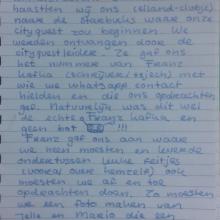 haastten wij ons celland-clubjes
naar de Starbucks waar onze
cityquest zou beginnen. We
werden ontvangen door de
cityquestleidster. Ze gaf ons
het nummer van Franz
Kafka (schrijver/tsjech) met
wie we whatsapp contact
hielden en die ons opdrachten
gaf. Natuurlijk was dit wel
de echte Franz Kafka en
geen bot !!!
Franz gaf ons aan waar
we heen moesten en leverde
ondertussen leuke feitjes
(vooral over hemzelf) ook
moesten we af en toe
opdrachten doen. Zo moesten
we een foto maken van
Jelle en Mario die een